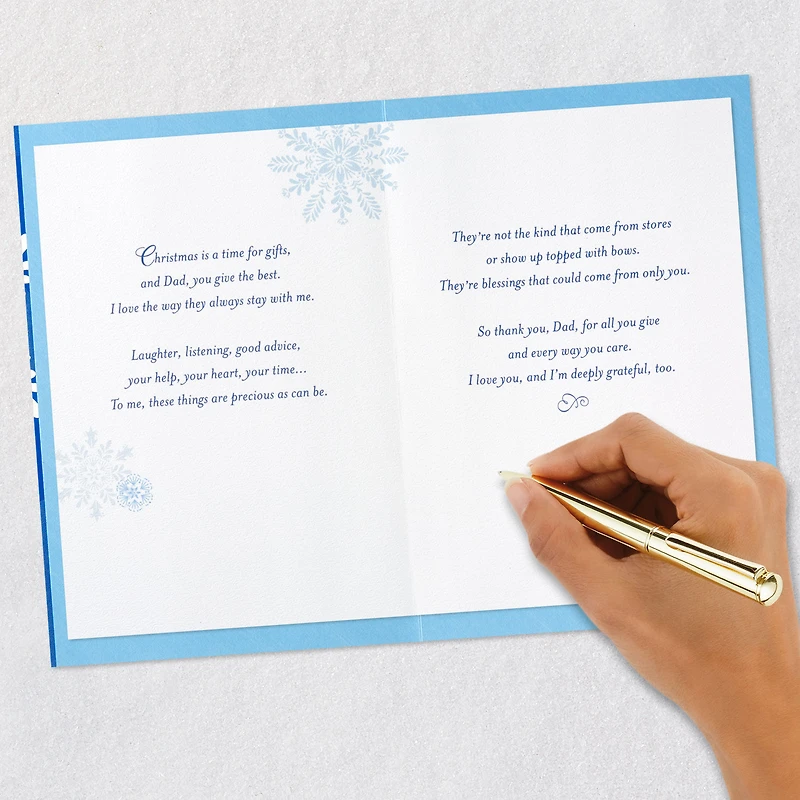 Christmas is a time for gifts,
and Dad, you give the best.
I love the way they always stay with me.
Laughter, listening, good advice,
your help, your heart, your time...
To me, these things are precious as can be.
They're not the kind that come from stores
or show up topped with bows.
They're blessings that could come from only you.
So thank you, Dad, for all you give
and every way you care.
I love you, and I'm deeply grateful, too.